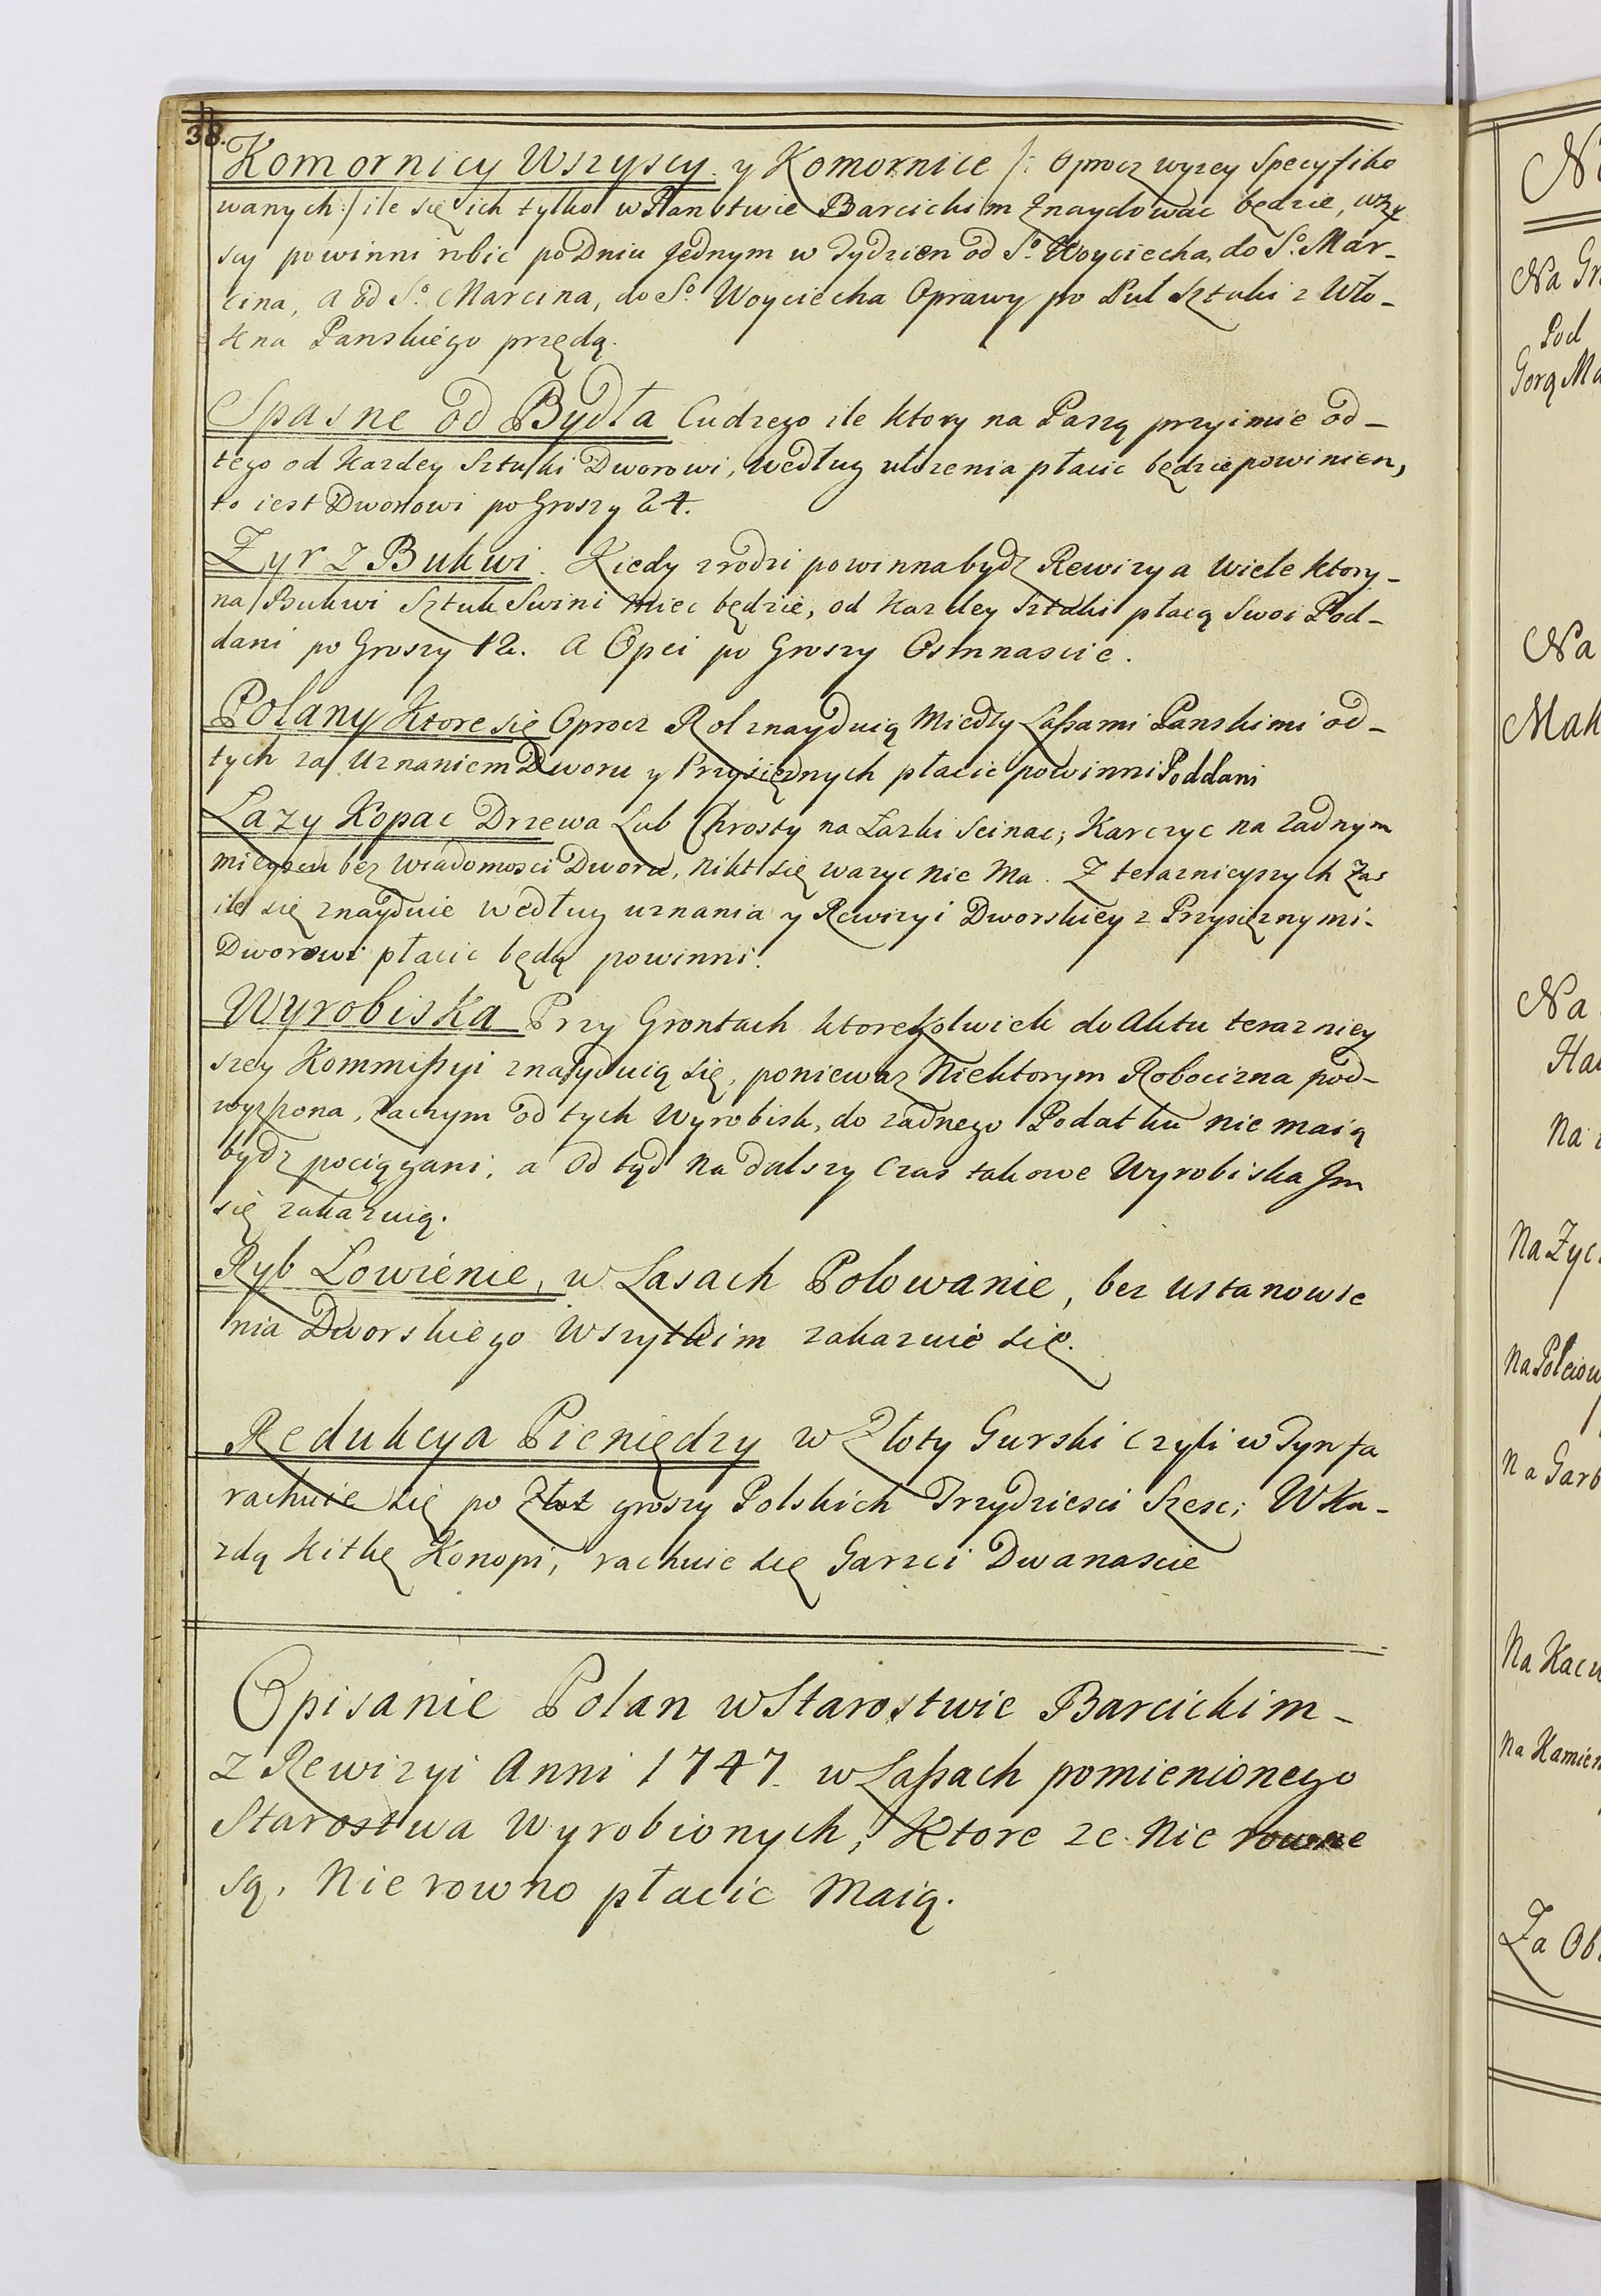 38.
Komornicy Wszyscy y Komornice /: Oprocz wyzey Specyfiko
wanych :/ ile się ich tylko w Panstwie Barcickim Znaydowac będzie, wszy
scy powinni robic po Dniu Jednym w Tydzien od S.º Woyciecha, do S.º Mar-
cina, a od S.º Marcina, do S.º Woyciecha Oprawy po Puł Sztuki z Wło-
kna Panskiego przędą.
Spasne od Bydła Cudzego ile ktory na Paszą przyimie od-
tego od Kazdey Sztuki Dworowi, według ulozenia płacic będzie powinien,
to iest Dworowi po Groszy 24.
Zyr z Bukwi. Kiedy zrodzi powinna bydz Rewizya wiele ktory-
na Bukwi Sztuk Swini miec będzie, od Kazdey Sztuki płacą Swoi Pod-
dani po Groszy 12. a Opci po Groszy Osmnascie.
Polany Ktore się Oprocz Rol znayduią Miedzy Laßami Panskimi od-
tych za Uznaniem Dworu y Przysięznych płacic powinni Poddani
Łazy Kopac Drzewa Lub Chrosty na Łazki Scinac; Karczyc na Zadnym
mieyscu bez Wiadomosci Dworu, Nikt się wazyc Nie Ma. Z teraznieyszych Zas
ile się znayduie według uznania y Rewizyi Dworskiey z Przysięznymi-
Dworowi płacic będą powinni.
Wyrobiska Przy Grontach ktorekolwiek do Aktu teraz niey
szey Kommißyi znayduią się, poniewaz Niektorym Robocizna pod-
wyzszona, zaczym od tych Wyrobisk, do zadnego Podatku nie maią
bydz pociągani, a Od tąd Na dalszy Czas takowe Wyrobiska Jm
się zakazuią.
Ryb Łowienie, w Lasach Polowanie, bez ustanowie
nia Dworskiego Wszytkim zakazuie się.
Redukcya Pieniędzy w Złoty Gurski czyli w Tynfa
rachuie się po Złot groszy Polskich Trzydziesci Szesc; W Ka-
zdą Kitkę Konopi, rachuie się Garzci Dwanascie
Opisanie Polan w Starostwie Barcickim-
z Rewizyi Anni 1747. w Laßach pomienionego
Starostwa Wyrobionych, Ktore ze Nie rowne
są, Nie rowno płacic Maią.
Na Gr
Pod
Gorą Ma
Na
Mak
Na
Na
Na Zyc
Na Polciow
Na Garb
Na Kacz
Na Kamien
Za Ob